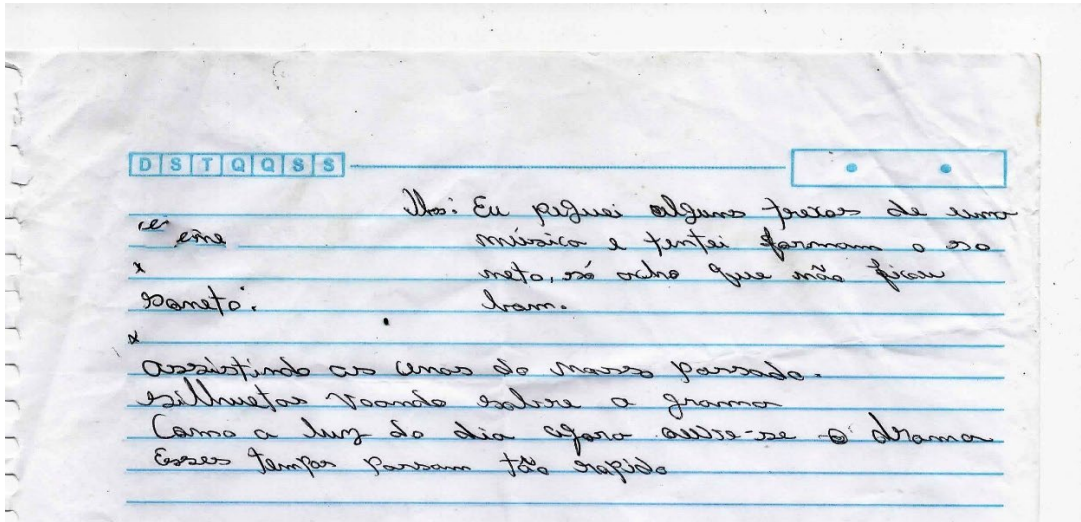 D S T Q Q S S
Obs: Eu peguei alguns frezas de uma
música e tentei formam o so
neto, só acho que não ficou
bom.
Soneto:
assistindo as cenas do nosso passado.
silhuetas voando sobre a grama
Como a luz do dia agora ouve-se o drama
Esses tempos passam tão rapido